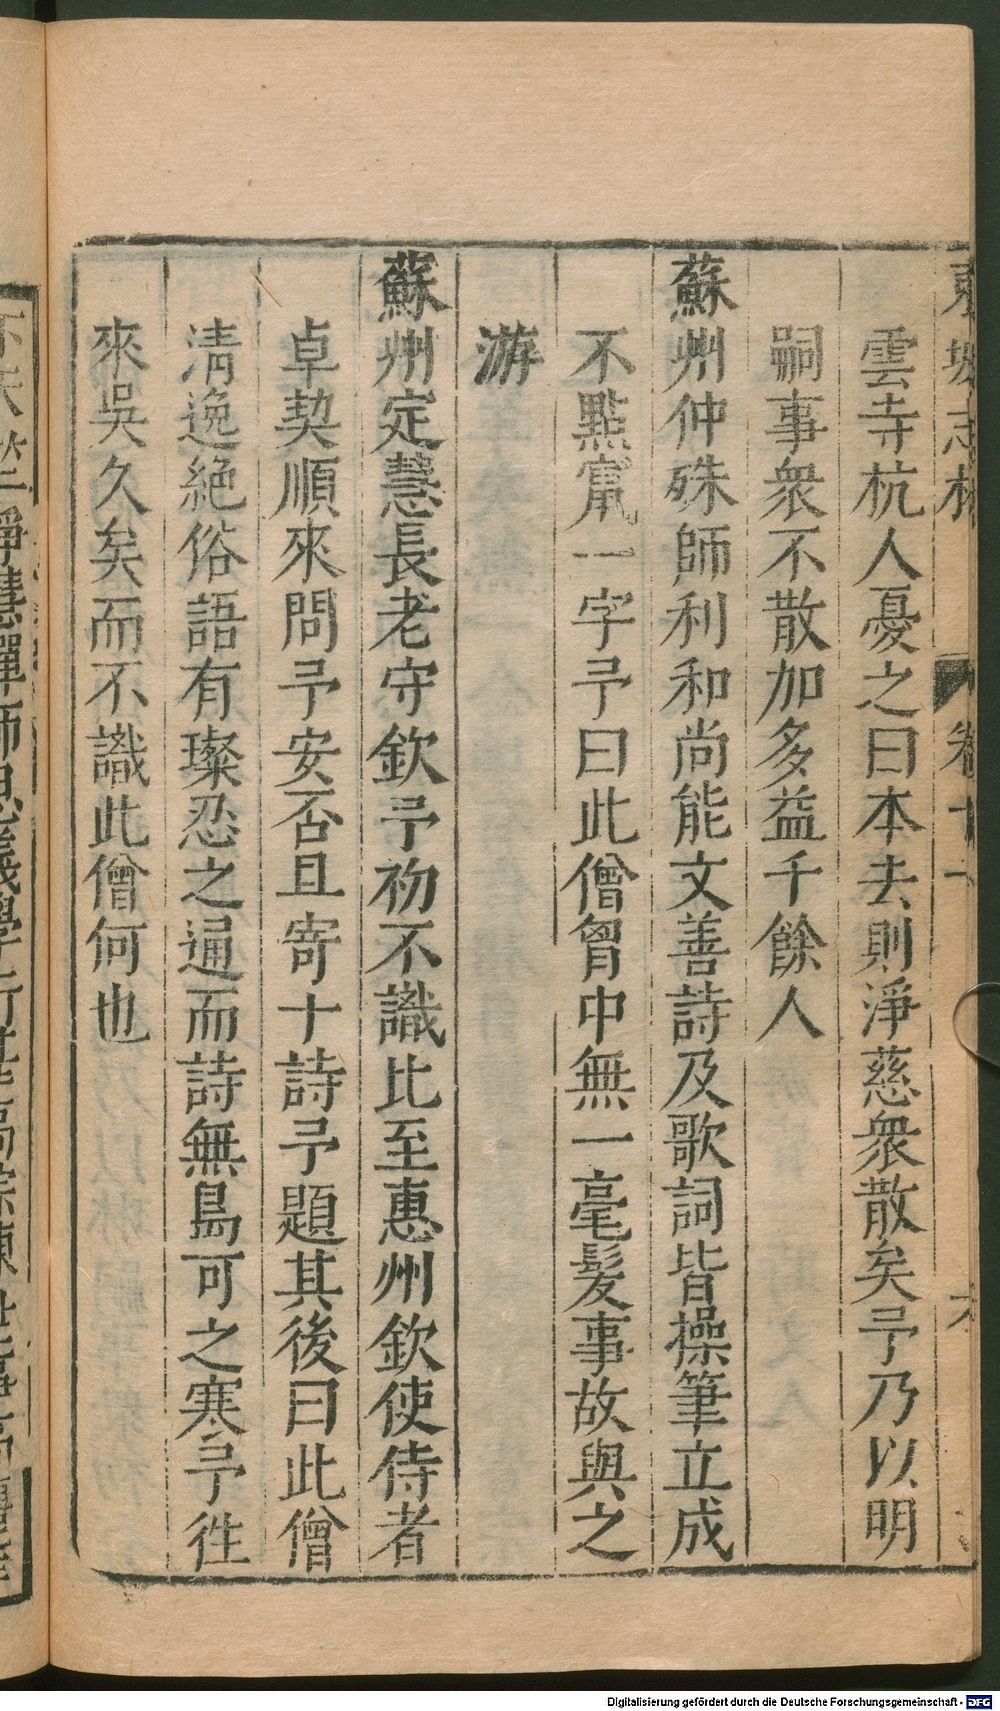 東坡志林 卷十一 六
雲寺杭人憂之曰本去則淨慈衆散矣予乃以明
嗣事衆不散加多益千餘人
蘇州仲殊師利和尚能文善詩及歌詞皆操筆立成
不點竄一字予曰此僧胷中無一毫髮事故與之
游
蘇州定慧長老守欽予初不識比至惠州欽使侍者
卓契順來問予安否且寄十詩予題其後曰此僧
清逸絕俗語有璨忍之通而詩無島可之寒予徃
來吳久矣而不識此僧何也
Digitalisierung gefördert durch die Deutsche Forschungsgemeinschaft - DFG